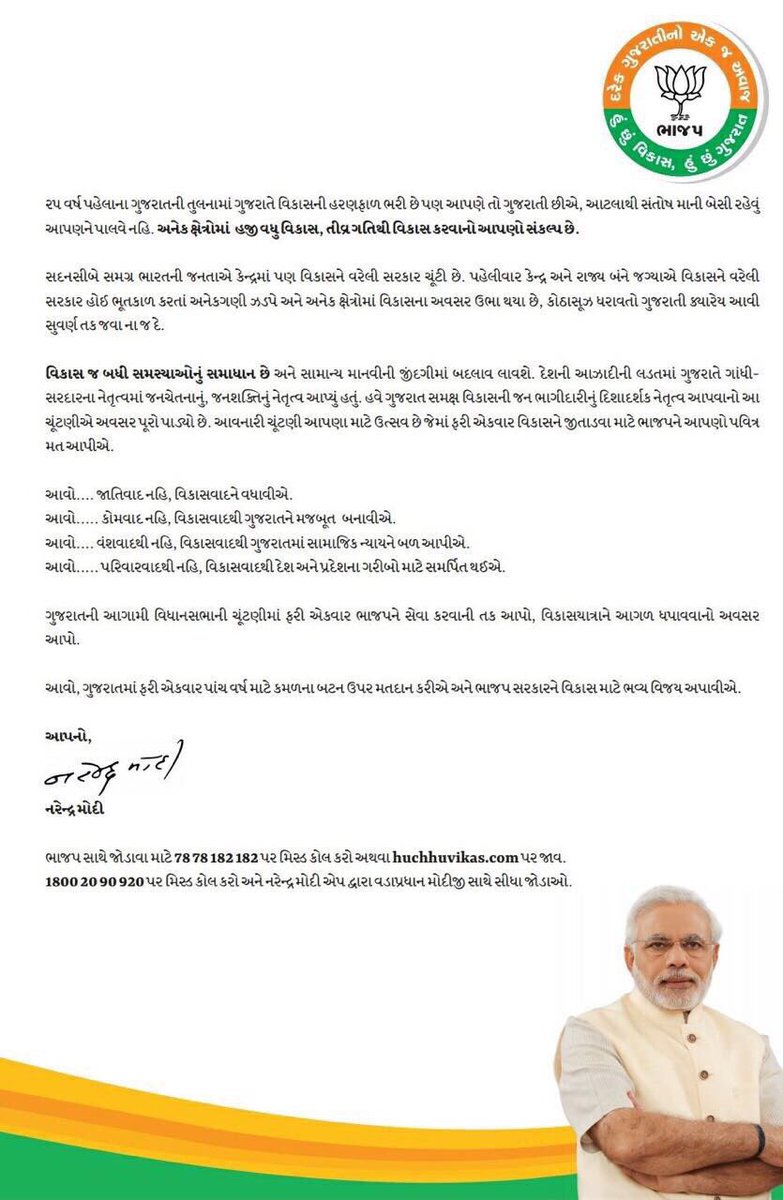 દરેક ગુજરાતીનો એક જ અવાજ
ભાજપ
હું છું વિકાસ, હું છું ગુજરાત
૨૫ વર્ષ પહેલાના ગુજરાતની તુલનામાં ગુજરાતે વિકાસની હરણફાળ ભરી છે પણ આપણે તો ગુજરાતી છીએ, આટલાથી સંતોષ માની બેસી રહેવું
આપણને પાલવે નહિ. અનેક ક્ષેત્રોમાં હજી વધુ વિકાસ, તીવ્ર ગતિથી વિકાસ કરવાનો આપણો સંકલ્પ છે.
સદનસીબે સમગ્ર ભારતની જનતાએ કેન્દ્રમાં પણ વિકાસને વરેલી સરકાર ચૂંટી છે. પહેલીવાર કેન્દ્ર અને રાજ્ય બંને જગ્યાએ વિકાસને વરેલી
સરકાર હોઈ ભૂતકાળ કરતાં અનેકગણી ઝડપે અને અનેક ક્ષેત્રોમાં વિકાસના અવસર ઉભા થયા છે, કોઠાસૂઝ ધરાવતો ગુજરાતી ક્યારેય આવી
સુવર્ણ તક જવા ના જ દે.
વિકાસ જ બધી સમસ્યાઓનું સમાધાન છે અને સામાન્ય માનવીની જીંદગીમાં બદલાવ લાવશે. દેશની આઝાદીની લડતમાં ગુજરાતે ગાંધી-
સરદારના નેતૃત્વમાં જનચેતનાનું, જનશક્તિનું નેતૃત્વ આપ્યું હતું. હવે ગુજરાત સમક્ષ વિકાસની જન ભાગીદારીનું દિશાદર્શક નેતૃત્વ આપવાનો આ
ચૂંટણીએ અવસર પૂરો પાડ્યો છે. આવનારી ચૂંટણી આપણા માટે ઉત્સવ છે જેમાં ફરી એકવાર વિકાસને જીતાડવા માટે ભાજપને આપણો પવિત્ર
મત આપીએ.
આવો.... જાતિવાદ નહિ, વિકાસવાદને વધાવીએ.
આવો..... કોમવાદ નહિ, વિકાસવાદથી ગુજરાતને મજબૂત બનાવીએ.
આવો.... વંશવાદથી નહિ, વિકાસવાદથી ગુજરાતમાં સામાજિક ન્યાયને બળ આપીએ.
આવો..... પરિવારવાદથી નહિ, વિકાસવાદથી દેશ અને પ્રદેશના ગરીબો માટે સમર્પિત થઈએ.
ગુજરાતની આગામી વિધાનસભાની ચૂંટણીમાં ફરી એકવાર ભાજપને સેવા કરવાની તક આપો, વિકાસયાત્રાને આગળ ધપાવવાનો અવસર
આપો.
આવો, ગુજરાતમાં ફરી એકવાર પાંચ વર્ષ માટે કમળના બટન ઉપર મતદાન કરીએ અને ભાજપ સરકારને વિકાસ માટે ભવ્ય વિજય અપાવીએ.
આપનો,
નરેન્દ્ર મોદી
નરેન્દ્ર મોદી
ભાજપ સાથે જોડાવા માટે 78 78 182 182 પર મિસ્ડ કોલ કરો અથવા huchhuvikas.com પર જાવ.
1800 20 90 920 પર મિસ્ડ કોલ કરો અને નરેન્દ્ર મોદી એપ દ્વારા વડાપ્રધાન મોદીજી સાથે સીધા જોડાઓ.